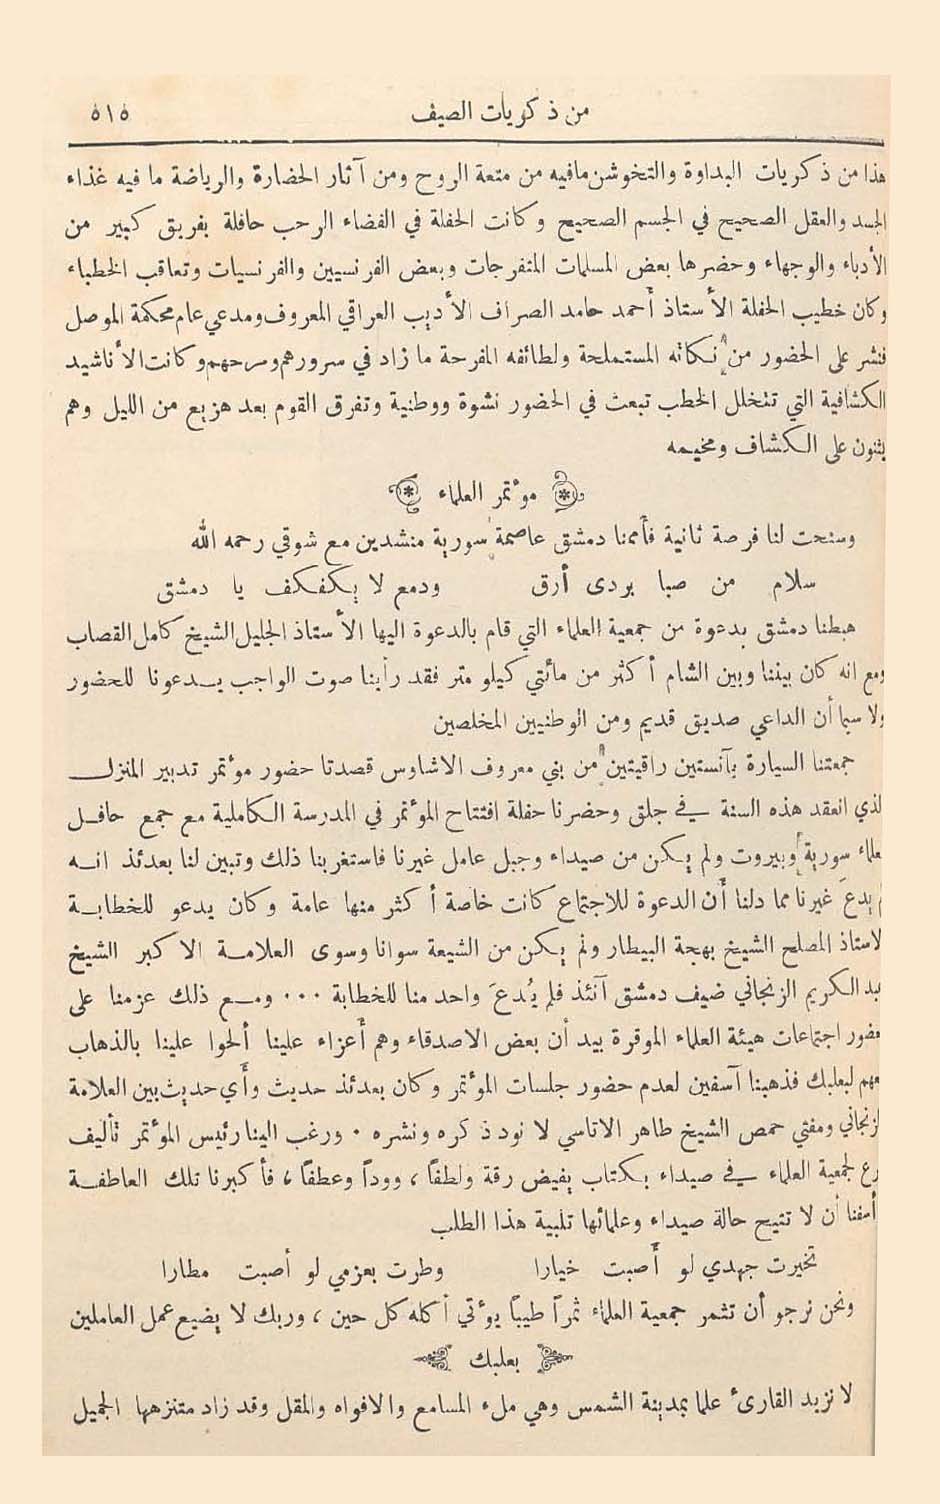 من ذكريات الصيف ٥١٥
هذا من ذكريات البداوة والتخوشن مافيه من متعة الروح ومن آثار الحضارة والرياضة ما فيه غذاء
الجسد والعقل الصحيح في الجسم الصحيح وكانت الحفلة في الفضاء الرحب حافلة بفريق كبير من
الأدباء والوجهاء وحضرها بعض المسلمات المتفرجات وبعض الفرنسيين والفرنسيات وتعاقب الخطباء
وكان خطيب الحفلة الأستاذ أحمد حامد الصراف الأديب العراقي المعروف ومدعي عام محكمة الموصل
فنشر على الحضور من نكاته المستملحة ولطائفه المفرحة ما زاد في سرورهم ومرحهم وكانت الأناشيد
الكشافية التي تتخلل الخطب تبعث في الحضور نشوة ووطنية وتفرق القوم بعد هزيع من الليل وهم
يثنون على الكشاف ومخيمه
مؤتمر العلماء
وسنحت لنا فرصة ثانية فأممنا دمشق عاصمة سورية منشدين مع شوقي رحمه الله
سلام من صبا بردى أرق ودمع لا يكفكف يا دمشق
هبطنا دمشق بدعوة من جمعية العلماء التي قام بالدعوة اليها الأستاذ الجليل الشيخ كامل القصاب
ومع انه كان بيننا وبين الشام أكثر من مائتي كيلو متر فقد رأينا صوت الواجب يدعونا للحضور
ولا سيما أن الداعي صديق قديم ومن الوطنيين المخلصين
جمعتنا السيارة بآنستين راقيتين من بني معروف الاشاوس قصدتا حضور مؤتمر تدبير المنزل
لذي انعقد هذه السنة في جلق وحضرنا حفلة افتتاح المؤتمر في المدرسة الكاملية مع جمع حافل
علماء سورية وبيروت ولم يكن من صيداء وجبل عامل غيرنا فاستغربنا ذلك وتبين لنا بعدئذ انه
يدعَ غيرنا مما دلنا أن الدعوة للاجتماع كانت خاصة أكثر منها عامة وكان يدعو للخطابة
لاستاذ المصلح الشيخ بهجة البيطار ولم يكن من الشيعة سوانا وسوى العلامة الاكبر الشيخ
بد الكريم الزنجاني ضيف دمشق آنئذ فلم يُدعَ واحد منا للخطابة ... ومع ذلك عزمنا على
حضور اجتماعات هيئة العلماء الموقرة بيد أن بعض الاصدقاء وهم أعزاء علينا ألحوا علينا بالذهاب
عهم لبعلبك فذهبنا آسفين لعدم حضور جلسات المؤتمر وكان بعدئذ حديث وأي حديث بين العلامة
لزنجاني ومفتي حمص الشيخ طاهر الاتاسي لا نود ذكره ونشره . ورغب الينا رئيس المؤتمر تأليف
رع لجمعية العلماء في صيداء بكتاب يفيض رقة ولطفاً ، ووداً وعطفاً ، فأكبرنا تلك العاطفة
أسفنا أن لا تتيح حالة صيداء وعلمائها تلبية هذا الطلب
تخيرت جهدي لو أصبت خيارا وطرت بعزمي لو أصبت مطارا
ونحن نرجو أن تثمر جمعية العلماء ثمراً طيباً يؤتي أكله كل حين ، وربك لا يضيع عمل العاملين
بعلبك
لا نزيد القارئ علما بمدينة الشمس وهي ملء المسامع والافواه والمقل وقد زاد متنزهها الجميل